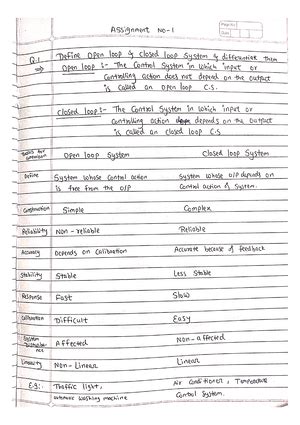 Assignment No-1
Page No
Date
Q.1 Define Open loop & closed loop System & differentiate them
⇒ Open loop :- The Control System in which input or
Controlling action does not depend on the output
is Called an Open loop C.S.
Closed loop :- The Control System in which input or
Controlling action depends on the output
is called an closed loop C.S
Basis for comparison Open loop System Closed loop System
Define System whose control action System whose o/p depends on
is free from the o/p Control action of System.
Construction Simple Complex
Reliability Non-reliable Reliable
Accuracy Depends on Calibration Accurate because of feedback
Stability Stable Less Stable
Response Fast Slow
Calibration Difficult Easy
System Disturbance Affected Non-affected
Linearity Non-Linear Linear
E.g:. Traffic light, Air Conditioner, Temperature
automatic washing machine Control System.